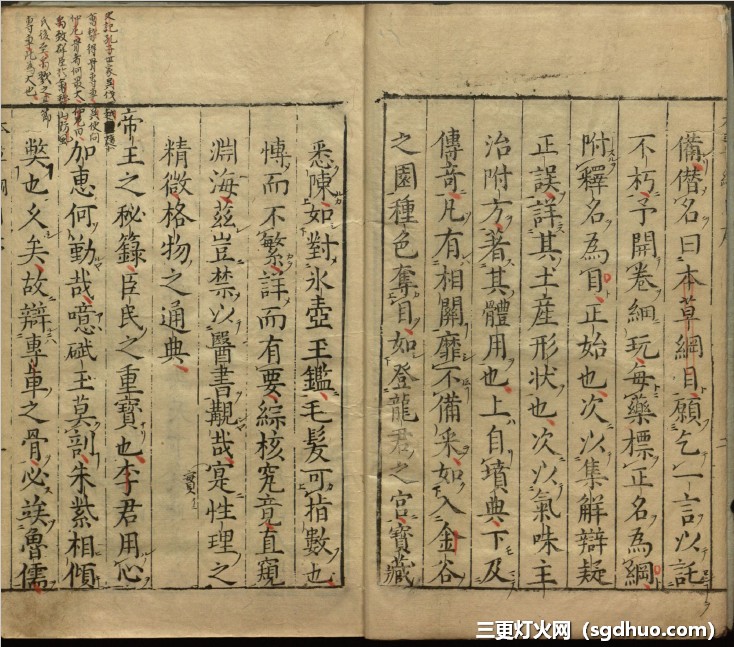 備僭名曰本草綱目願乞一言以託
不朽予開卷細玩每藥標正名為綱
附釋名為目正始也次以集解辯疑
正誤詳其土產形狀也次以氣味主
治附方著其體用也上自墳典下及
傳奇凡有相關靡不備采如入金谷
之園種色奪目如登龍君之宮寶藏
悉陳如對氷壺玉鑑毛髮可指數也
慱而不繁詳而有要綜核究竟直窺
淵海茲豈禁以醫書覯哉寔性理之
精微格物之通典
帝王之秘籙臣民之重寶也李君用心
加惠何勤哉噫碔玉莫剖朱紫相傾
弊也久矣故辯專車之骨必竢魯儒
史記孔子世家吳伐越
會稽得骨專車吳使問
仲尼骨者何最大仲尼曰
禹致群臣於會稽山防風
氏後至禹戮之其節
專車此為大也
三更灯火网（sgdhuo.com）